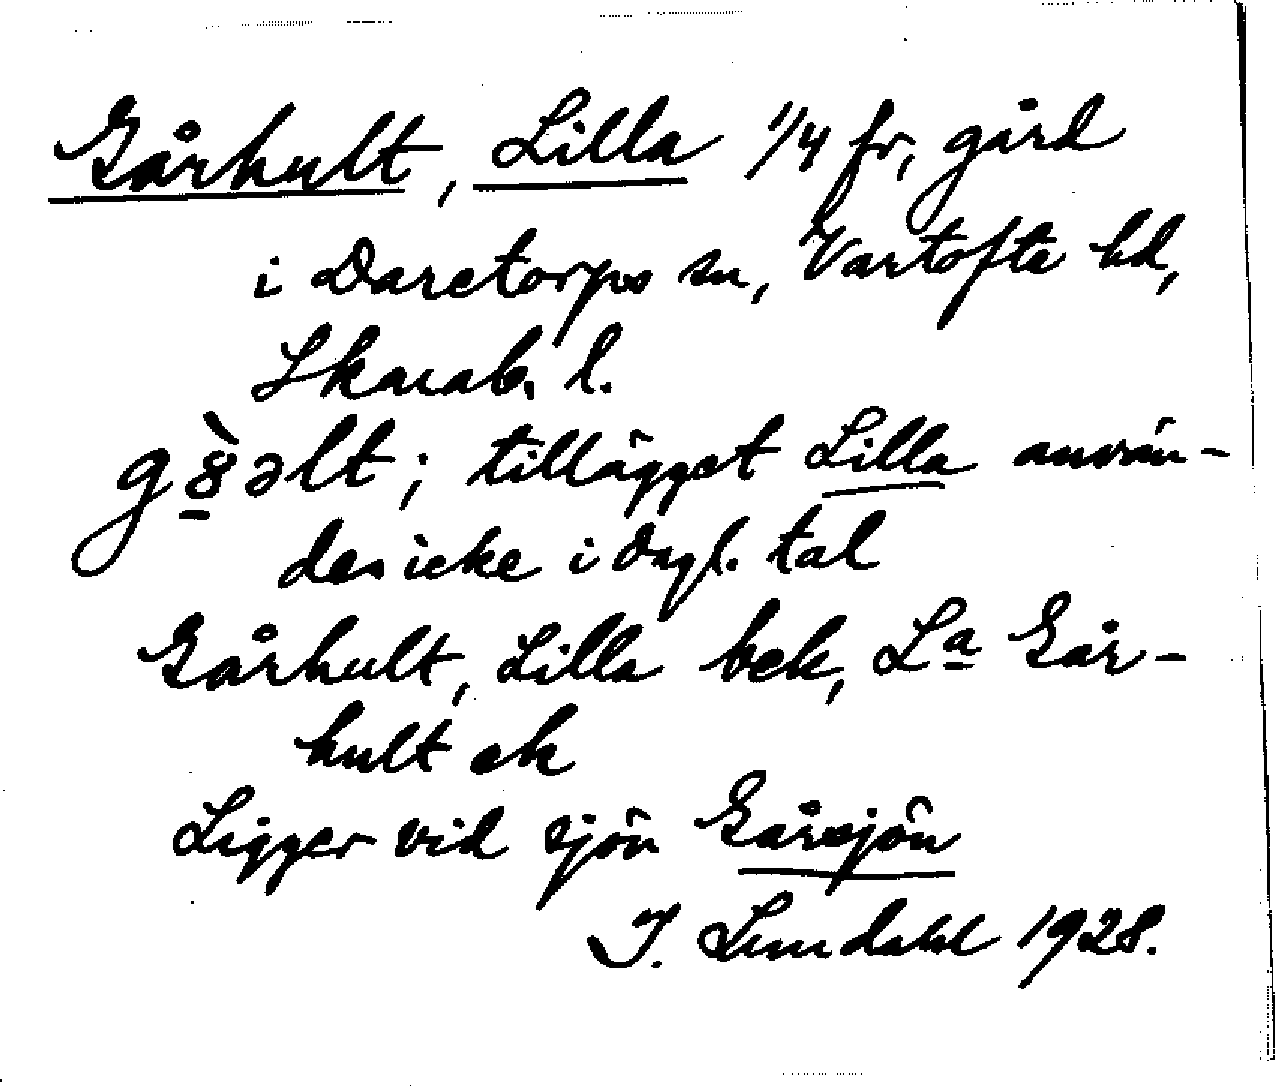 Gårhult, Lilla 1/4 fr, gård
i Daretorps sn, Vartofta hd,
Skarab. l.
g; tillägget Lilla använ-
des icke i dagl. tal
Gårhult, Lilla bek, La Går-
hult ek
Ligger vid sjön Gårsjön
I. Lundahl 1928.